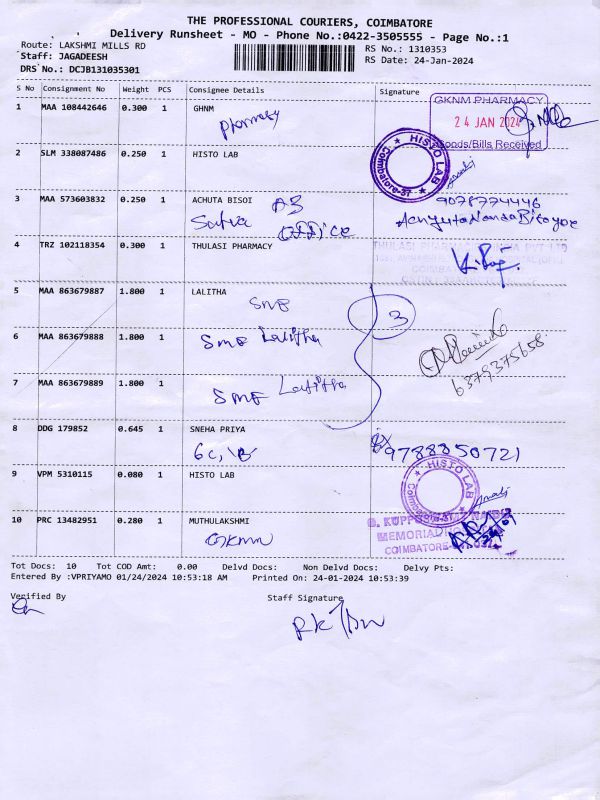 THE PROFESSIONAL COURIERS, COIMBATORE
Delivery Runsheet - MO - Phone No.:0422-3505555 - Page No.:1
Route: LAKSHMI MILLS RD
Staff: JAGADEESH
DRS No.: DCJB131035301
RS No.: 1310353
RS Date: 24-Jan-2024
S No Consignment No Weight PCS Consignee Details Signature
1 MAA 108442646 0.300 1 GHNM
Pharmacy
GKNM PHARMACY
24 JAN 2024
Goods/Bills Received
2 SLM 338087486 0.250 1 HISTO LAB
HISTO LAB
Coimbatore-37
3 MAA 573603832 0.250 1 ACHUTA BISOI
office
9078774446
4 TRZ 102118354 0.300 1 THULASI PHARMACY
5 MAA 863679887 1.800 1 LALITHA
SME
3
6 MAA 863679888 1.800 1
SME Lalitha
7 MAA 863679889 1.800 1
SME Lalitha
6379375658
8 DDG 179852 0.645 1 SNEHA PRIYA
9788850721
9 VPM 5310115 0.080 1 HISTO LAB
HISTO LAB
Coimbatore-37
10 PRC 13482951 0.280 1 MUTHULAKSHMI
GKNM
MEMORIAL
COIMBATORE
Tot Docs: 10 Tot COD Amt: 0.00 Delvd Docs: Non Delvd Docs: Delvy Pts:
Entered By :VPRIYAMO 01/24/2024 10:53:18 AM Printed On: 24-01-2024 10:53:39
Verified By
Staff Signature